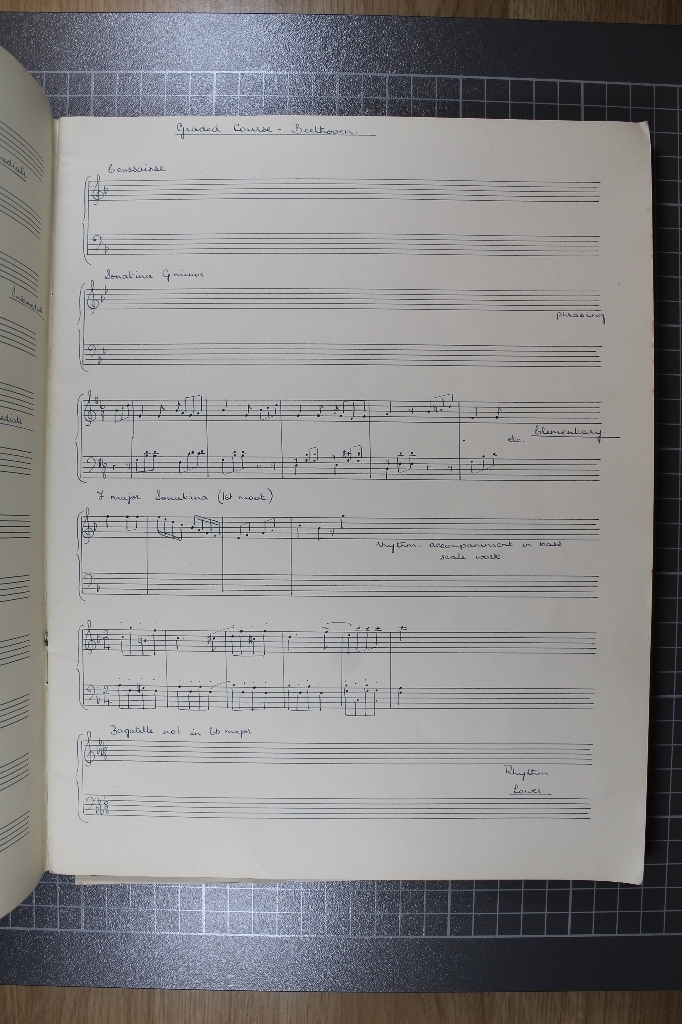 Graded Course - Beethoven
Ecossaisse
Sonatina G minor
phrasing
Elementary
etc.
F major Sonatina (1st movt)
Rhythm. accompaniment in bass
scale work
Bagatelle no 1 in Eb major
Rhythm
Lower